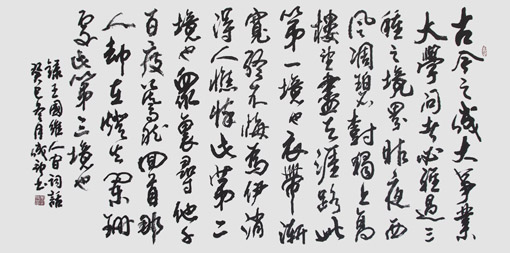 古今之成大事業
大學問者必經過三
種之境界昨夜西
風凋碧樹獨上高
樓望盡天涯路此
第一境也衣帶漸
寬終不悔爲伊消
得人憔悴此第二
境也眾裏尋他千
百度驀然回首那
人卻在燈火闌珊
處此第三境也
錄王國維人间詞話
癸巳冬月